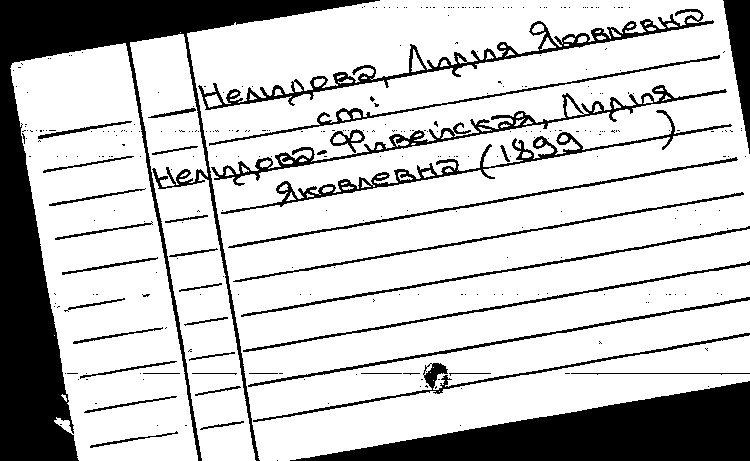 Нелидова, Лидия Яковлевна
см.:
Нелидова-Фивейская, Лидия
Яковлевна (1899       )